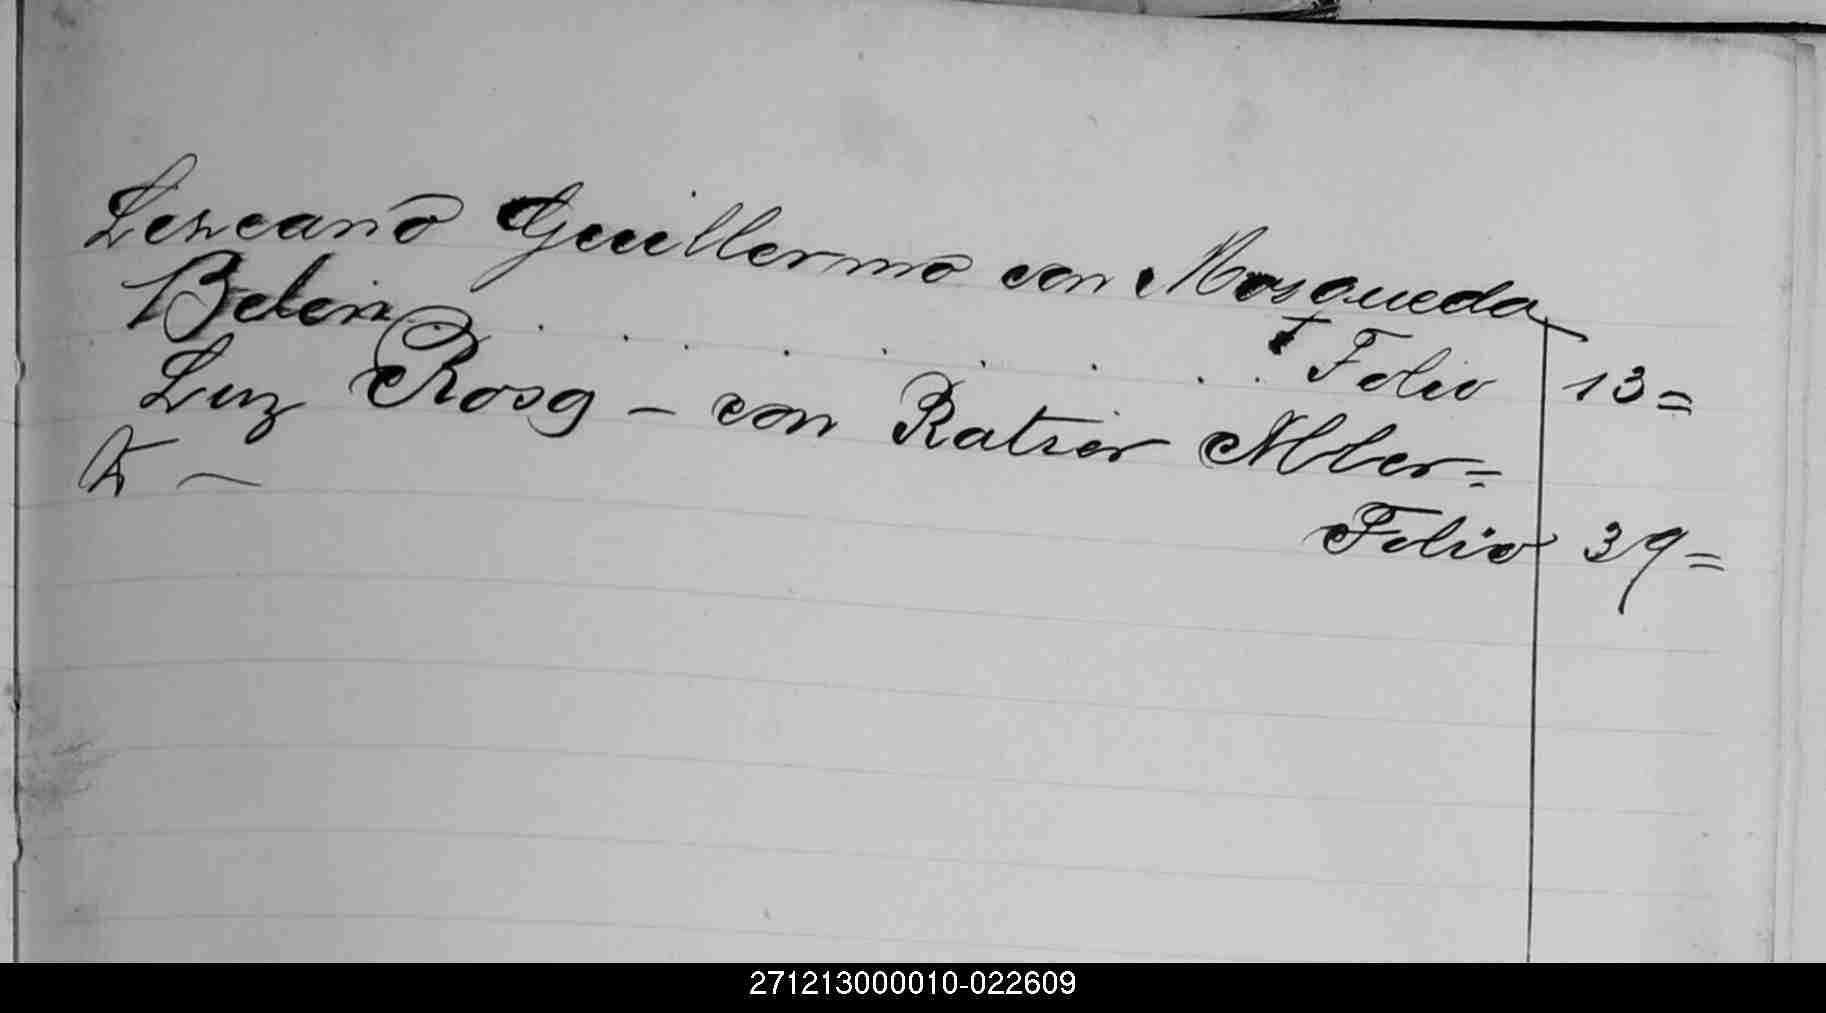 Lezcano Guillermo con Mosqueda
Belen . . . . . . . . . . Folio 13=
Luz Rosa - con Ratier Alber=
to —
Folio 39=
271213000010-022609